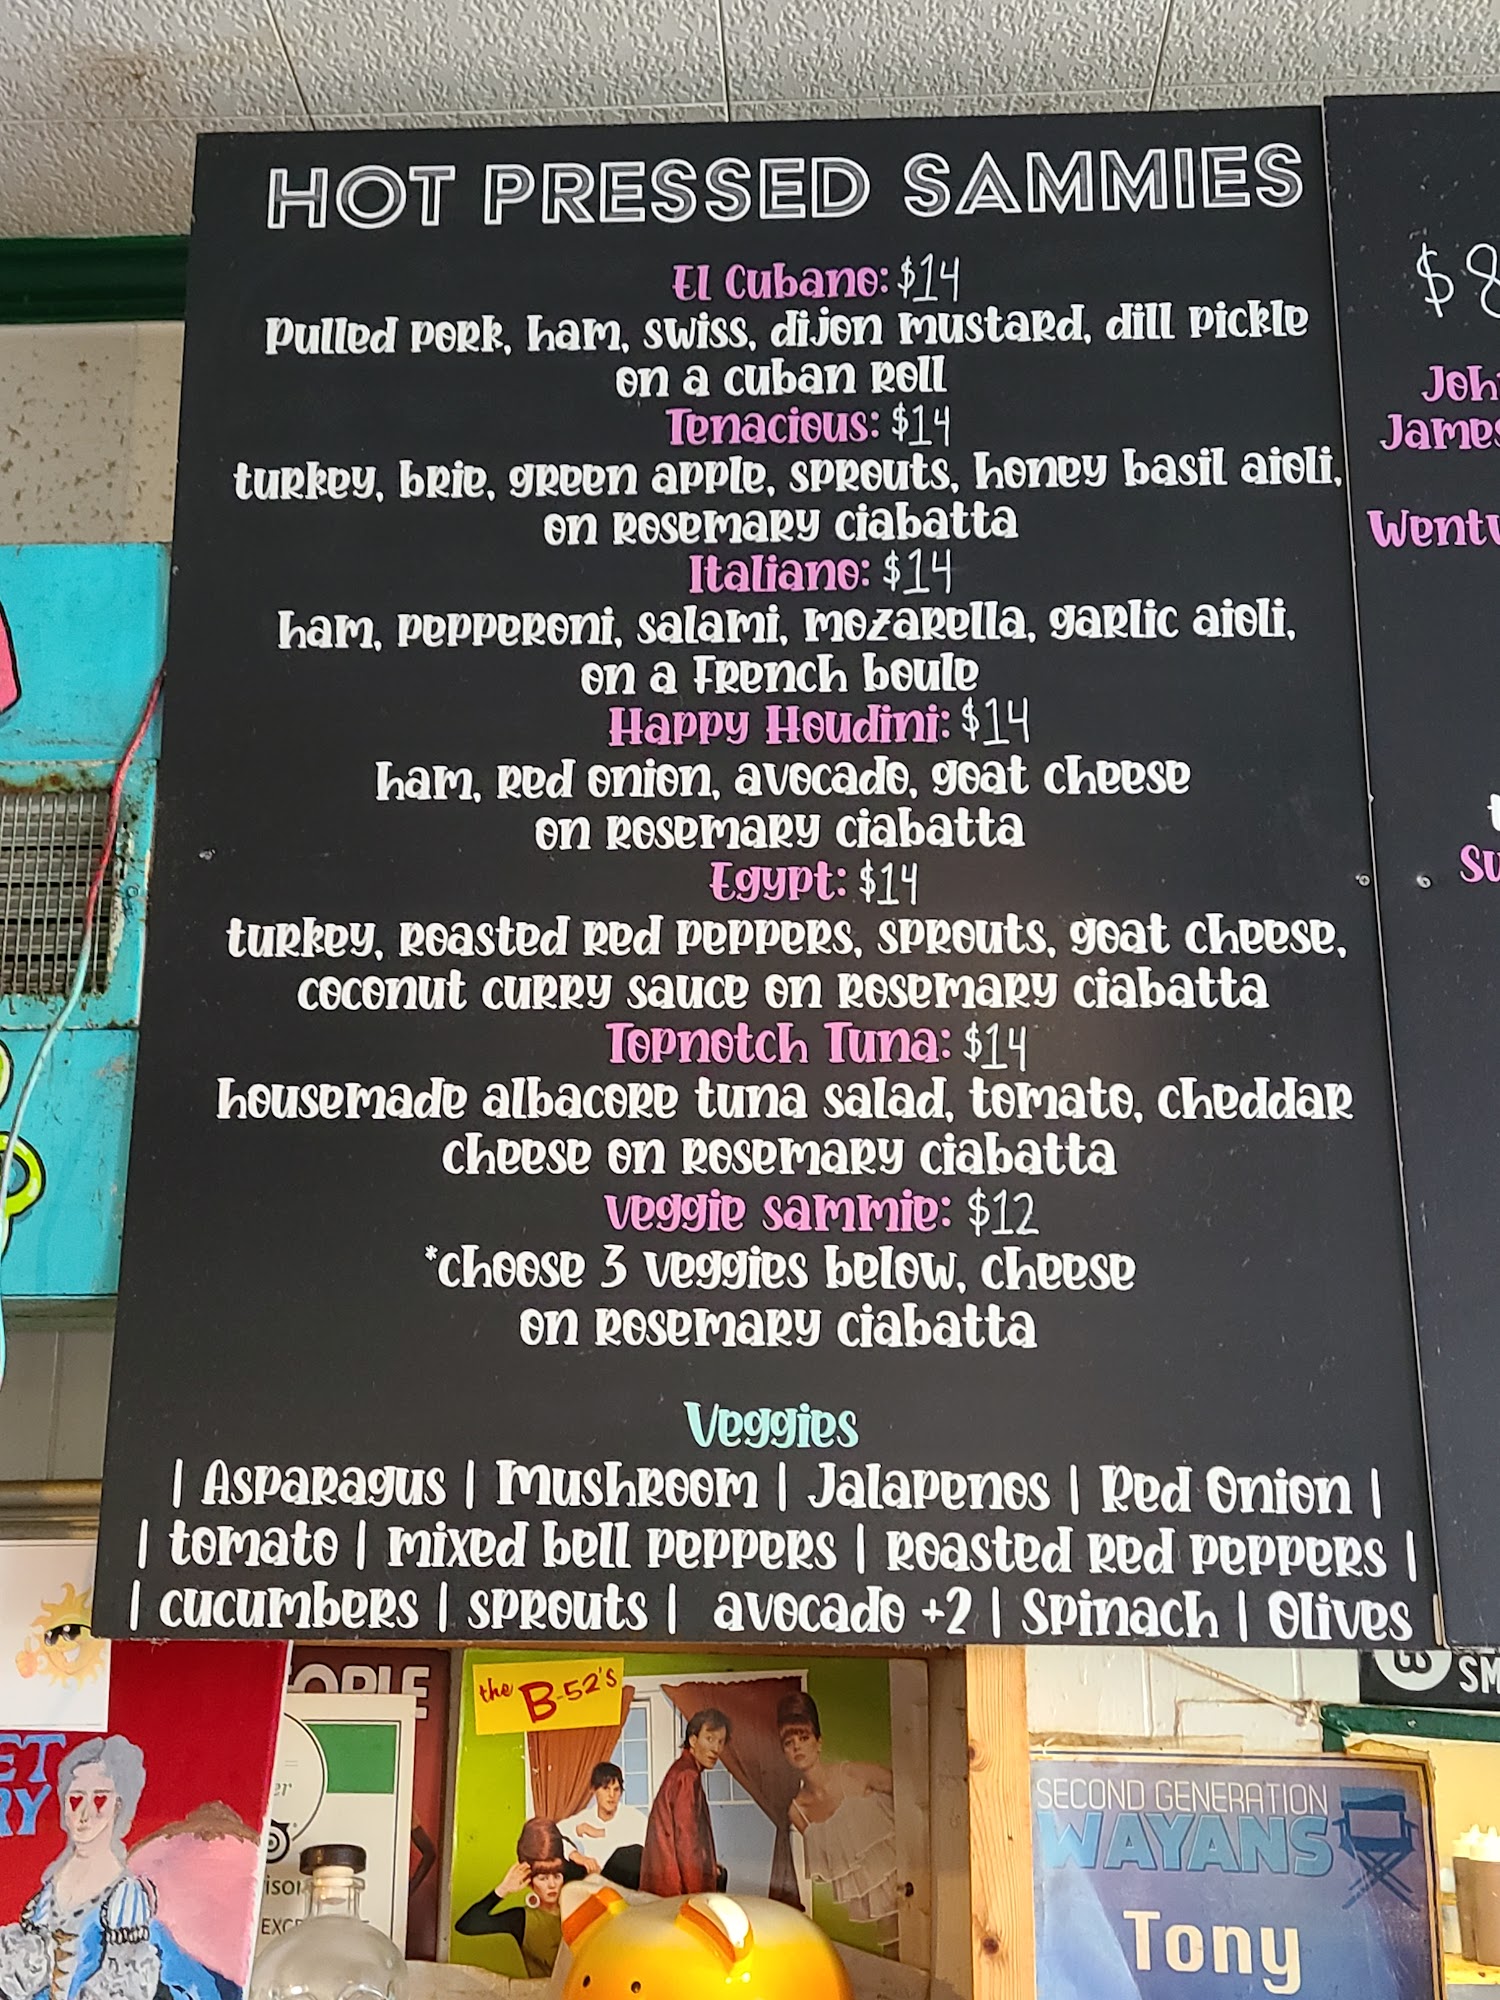 HOT PRESSED SAMMIES
El Cubano: $14
Pulled pork, ham, swiss, dijon mustard, dill pickle
on a cuban roll
Tenacious: $14
turkey, brie, green apple, sprouts, honey basil aioli,
on rosemary ciabatta
Italiano: $14
ham, pepperoni, salami, mozarella, garlic aioli,
on a French boule
Happy Houdini: $14
ham, red onion, avocado, goat cheese
on rosemary ciabatta
Egypt: $14
turkey, roasted red peppers, sprouts, goat cheese,
coconut curry sauce on rosemary ciabatta
Topnotch Tuna: $14
housemade albacore tuna salad, tomato, cheddar
cheese on rosemary ciabatta
veggie sammie: $12
*choose 3 veggies below, cheese
on rosemary ciabatta
Veggies
| Asparagus | Mushroom | Jalapenos | Red Onion |
| tomato | mixed bell peppers | roasted red peppers |
| cucumbers | sprouts | avocado +2 | Spinach | Olives
$8
James
the B-52's
SECOND GENERATION
WAYANS
Tony